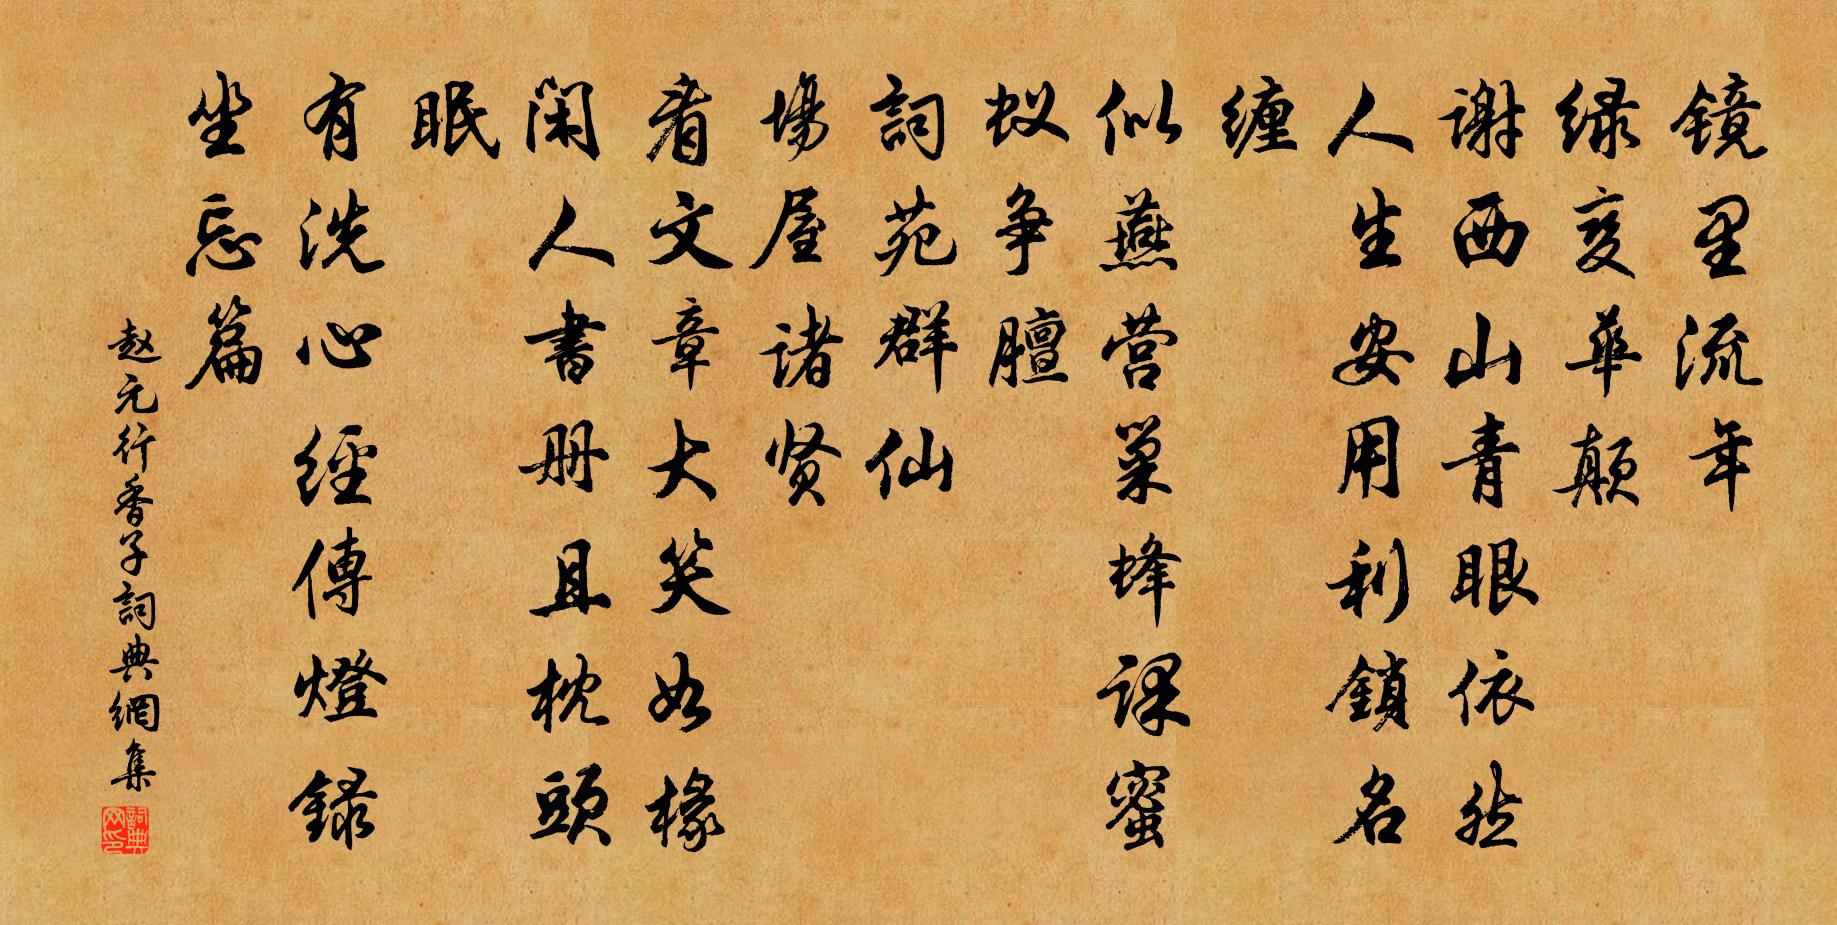 镜里流年
绿变华颠
谢西山青眼依然
人生安用利鎖名
缠
似燕营巢蜂课蜜
蚁争膻
詞苑群仙
場屋诸贤
看文章大笑如椽
閑人書册且枕頭
眠
有洗心經傳燈錄
坐忘篇
赵元行香子詞典網集
詞典网印